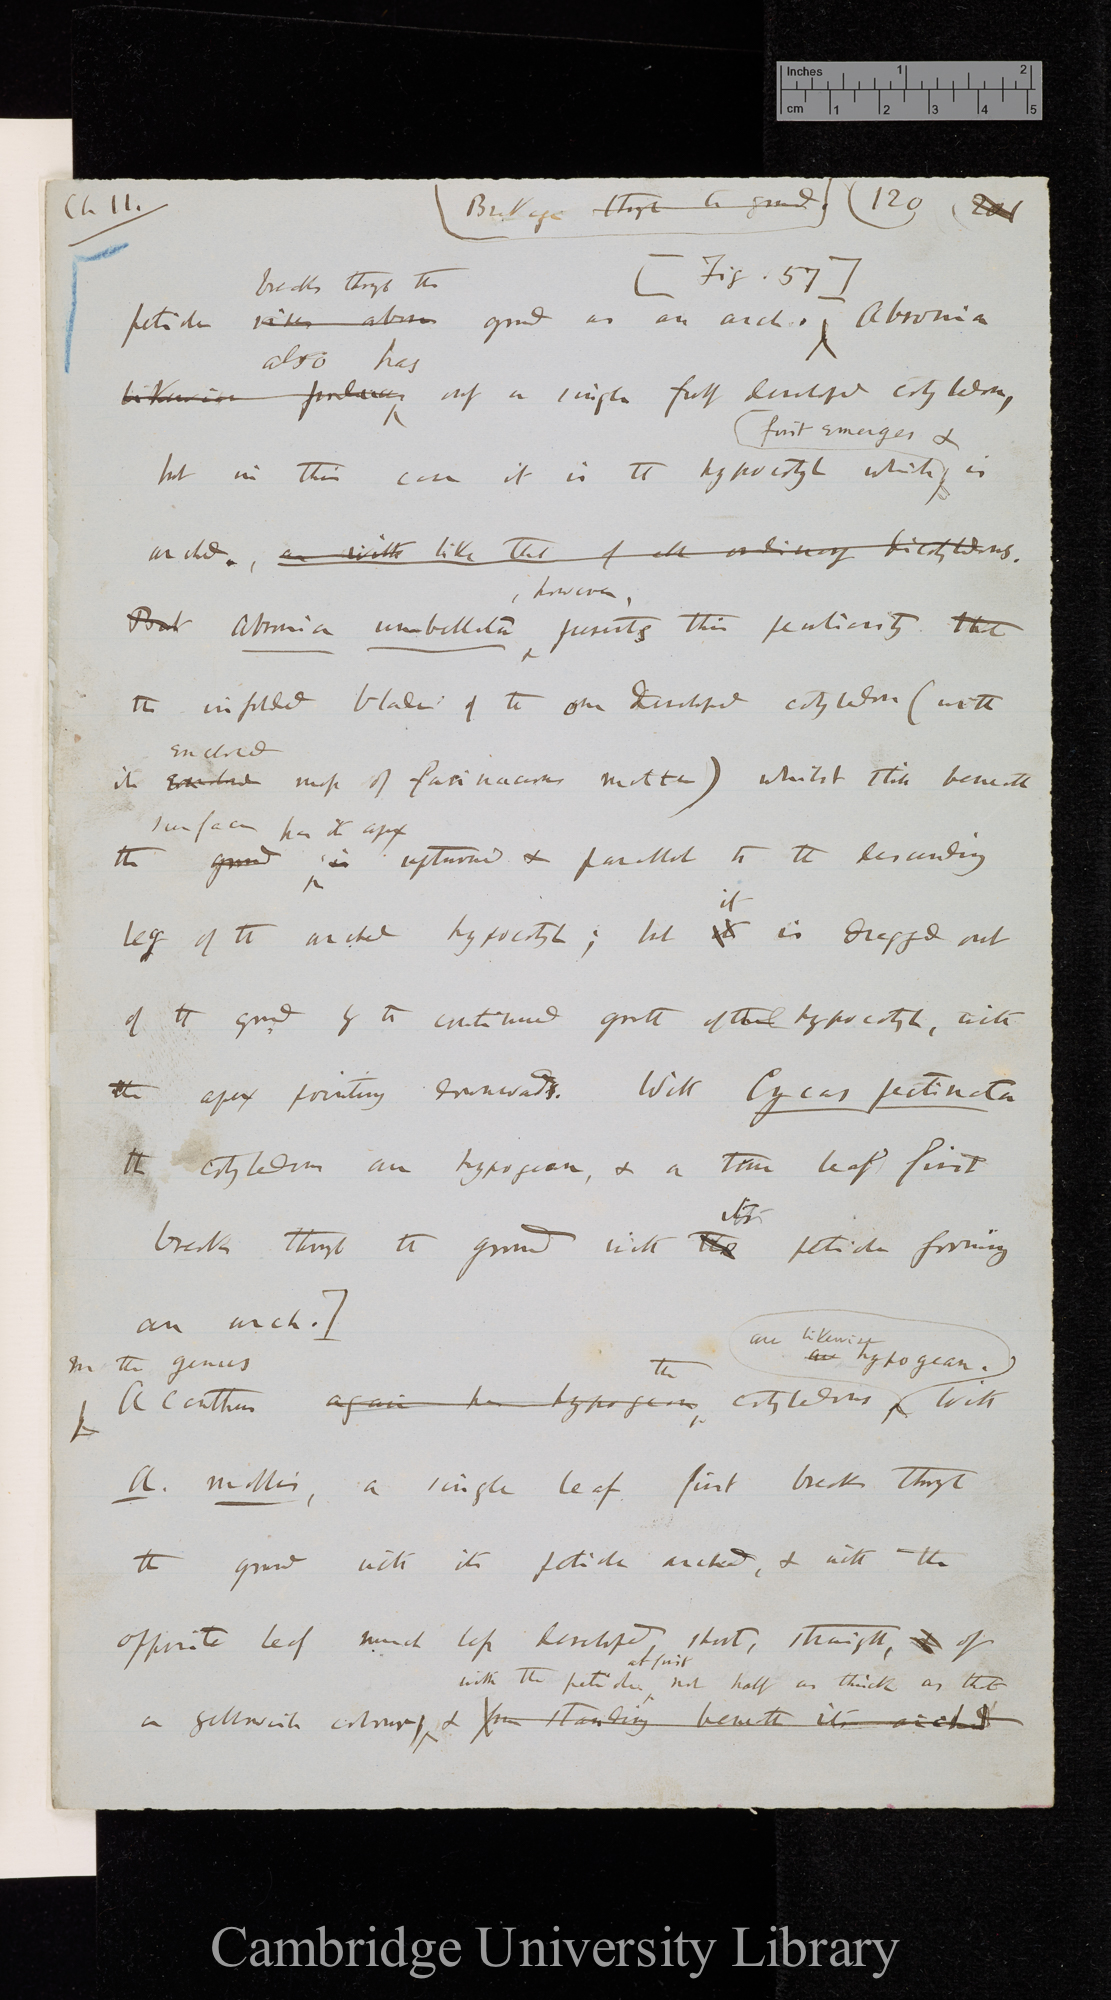 Inches 1 2
cm 1 2 3 4 5
Ch II.
Breakage through the ground. 120 201
[Fig. 57]
breaks through the
petiole rises above ground as an arch. Abronia
also has
likewise produces only a single fully developed cotyledon,
first emerges &
but in this case it is the hypocotyl which is
arched., as with like that of all ordinary dicotyledons.
, however,
But Abronia umbellata presents this peculiarity that
the infolded blade of the one developed cotyledon (with
enclosed
its enclosed mass of farinaceous matter) whilst still beneath
surface has its apex
the ground is upturned & parallel to the descending
it
leg of the arched hypocotyl; but it is dragged out
of the ground by the continued growth of the hypocotyl, with
the apex pointing downwards. With Cycas pectinata
the cotyledons are hypogean, & a true leaf first
its
breaks through the ground with the petiole forming
an arch.]
are likewise
In the genus the are hypogean.
Acanthus again has hypogean cotyledons With
A. mollis, a single leaf first breaks through
the ground with its petiole arched, & with the
opposite leaf much less developed, short, straight, & of
at first
with the petiole not half as thick as that
a yellowish colour, & standing beneath its arched
Cambridge University Library